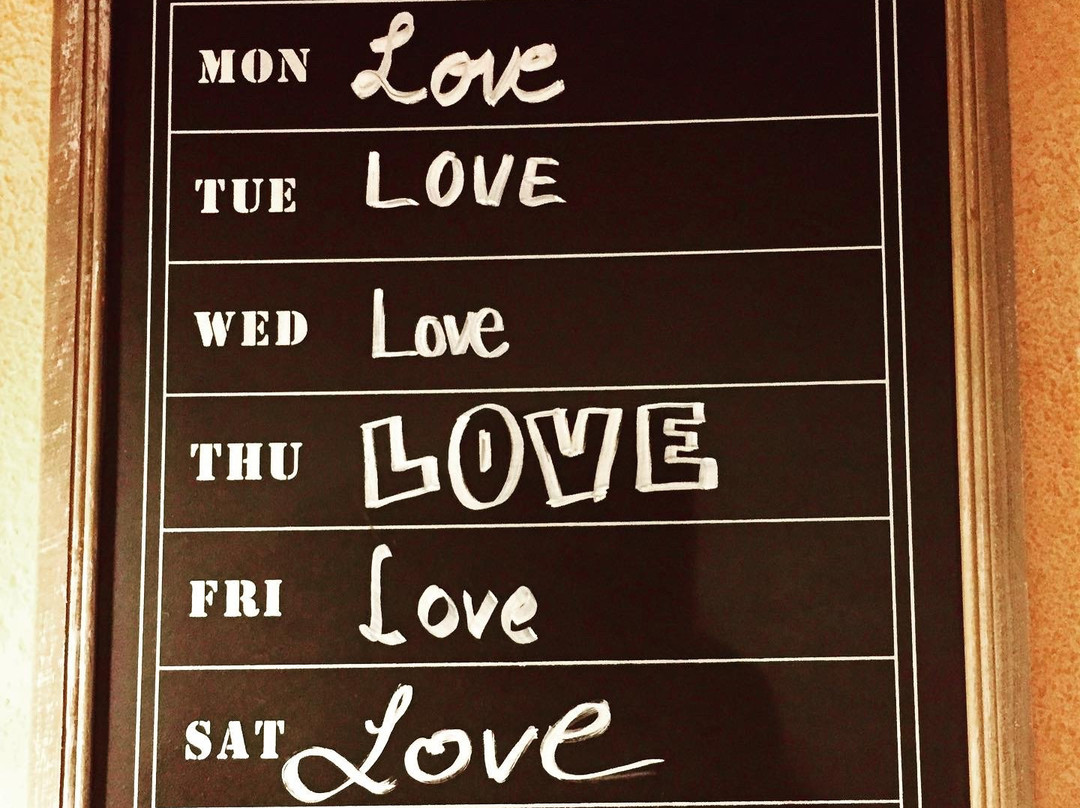 MON Love
TUE LOVE
WED Love
THU LOVE
FRI Love
SAT Love